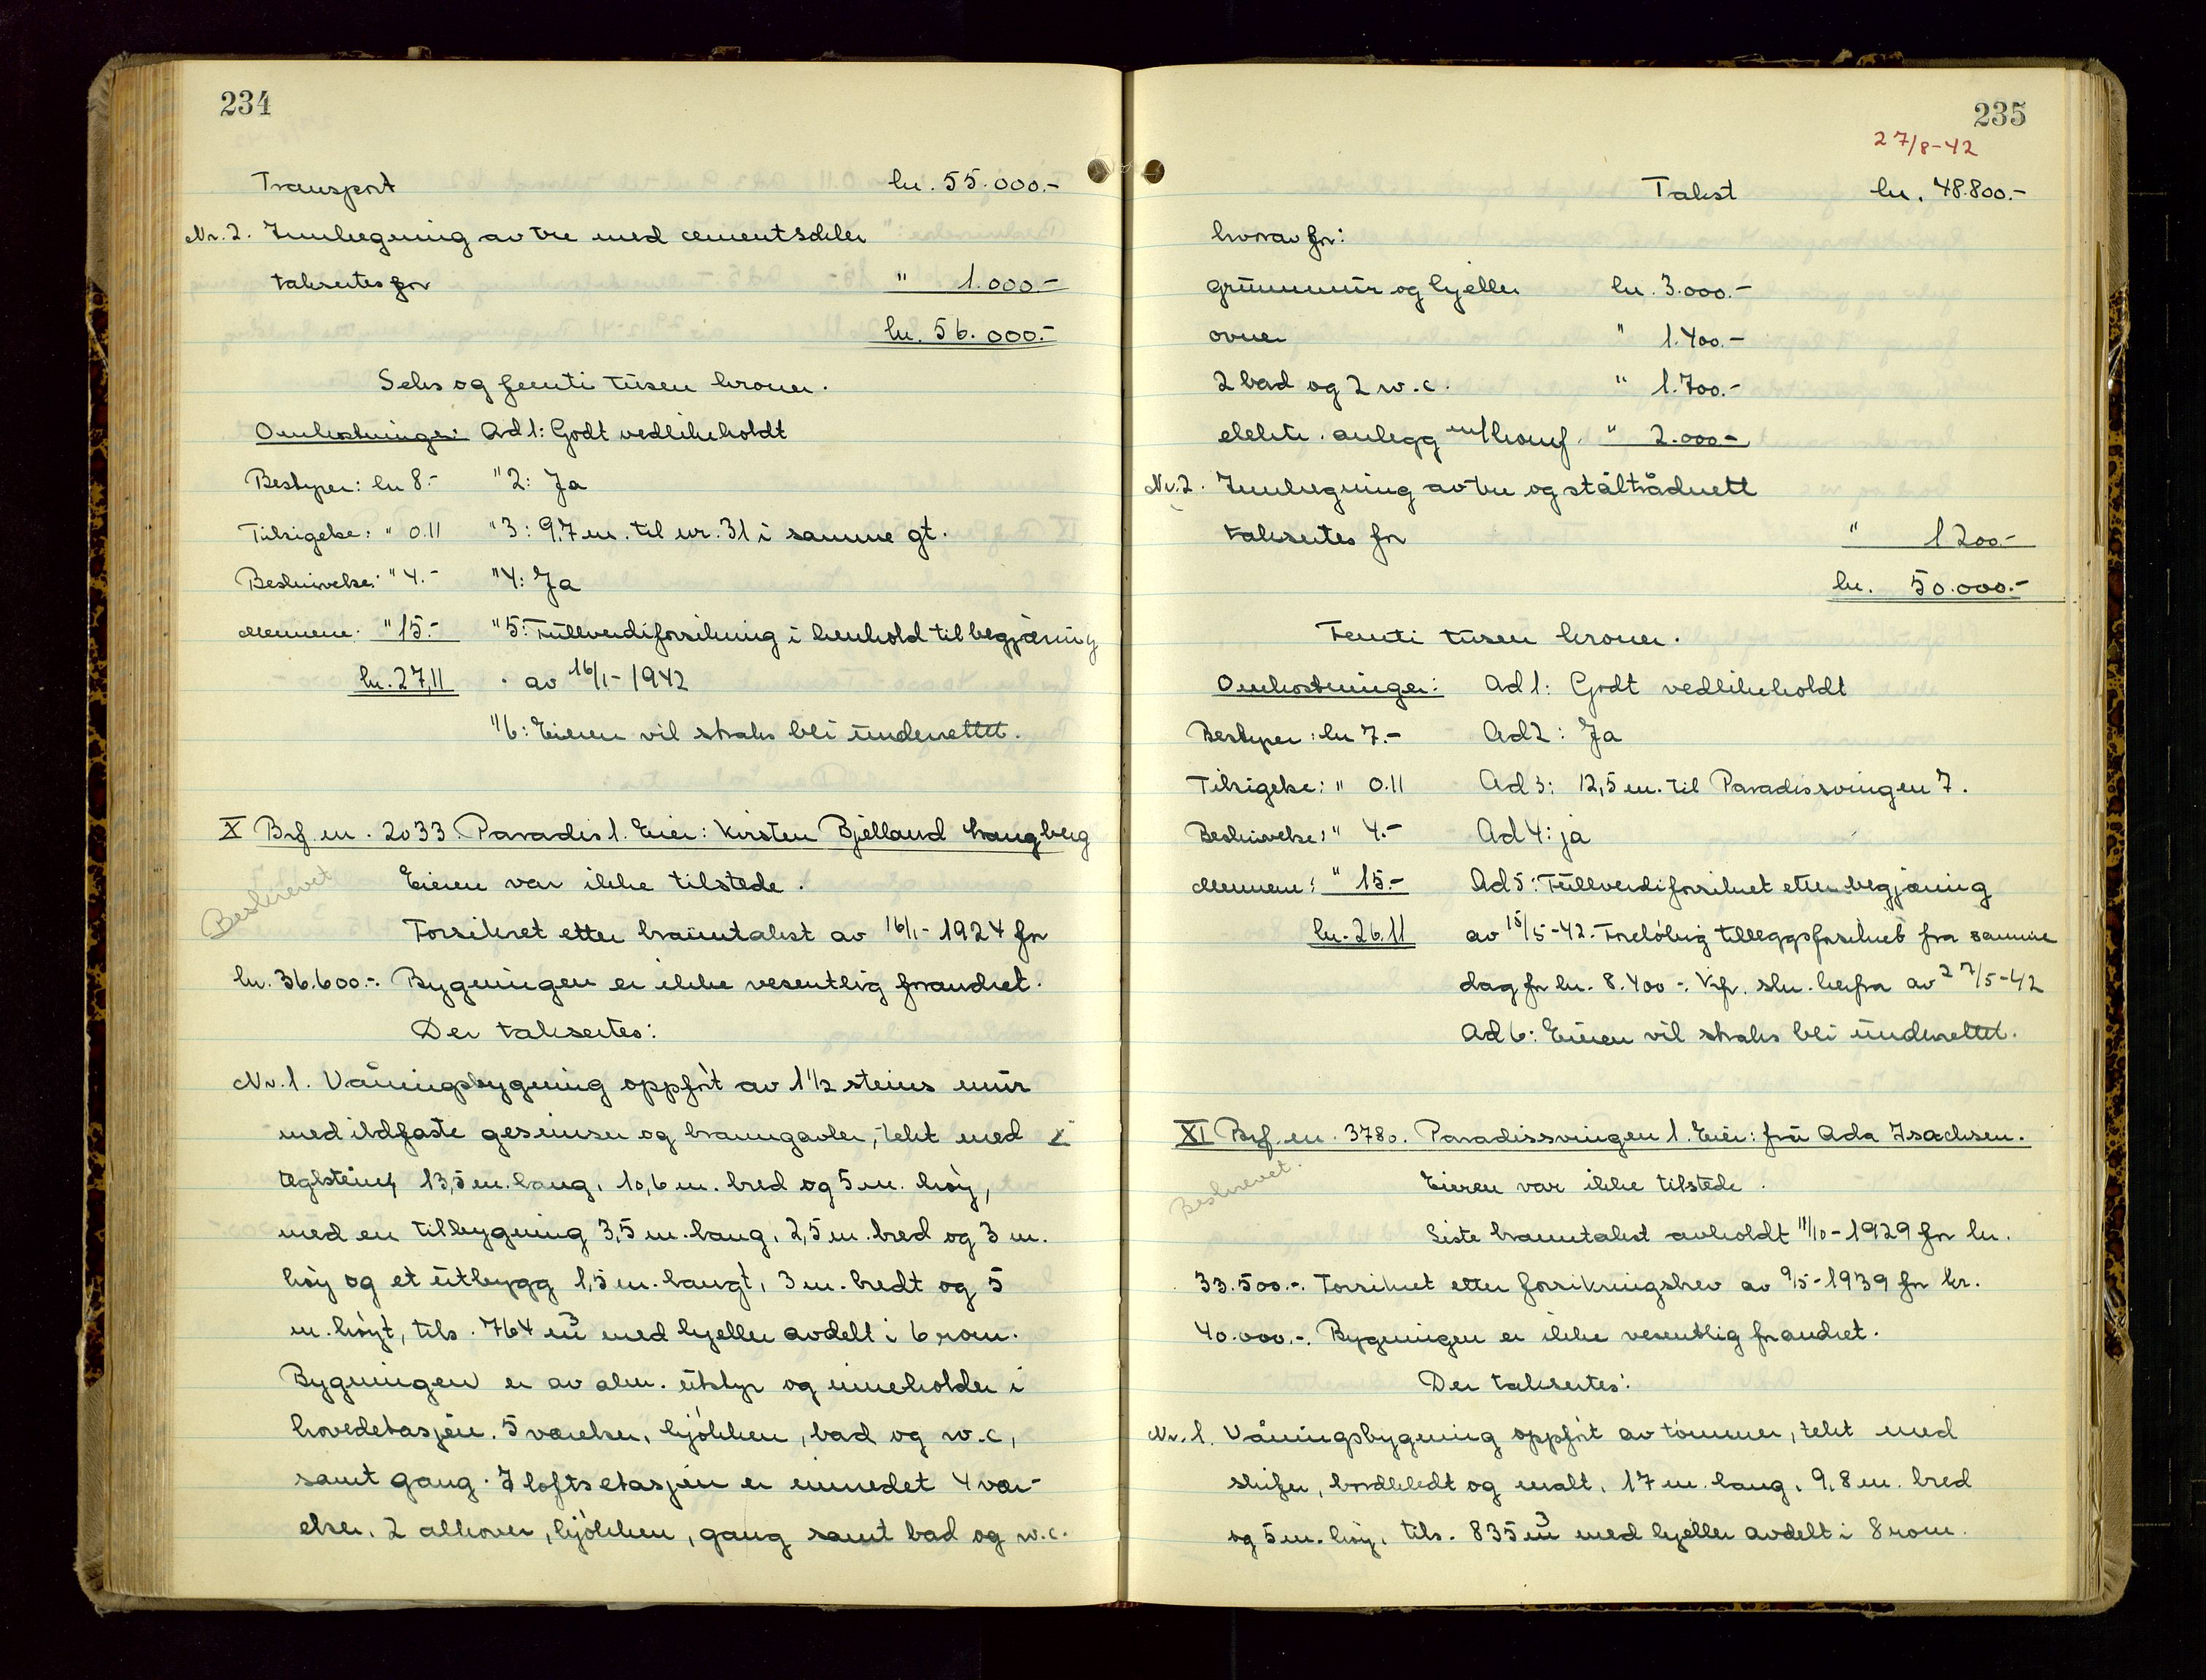 234
Transport kr. 55.000.-
Nr. 2. Innhegning av tre med cementsøiler
takseres for " 1.000.-
kr. 56.000.-
Seks og femti tusen kroner.
Omkostninger: Ad 1: Godt vedlikeholdt
Bestyrer: kr 8.- "2: Ja
Tilsigelse: " 0.11 "3: 9,7 m. til nr. 31 i samme gt.
Beskrivelse: " 4.- "4: Ja
Mennene: " 15.- "5: Fullverdiforsikring i henhold til begjæring
kr. 27,11 av 16/1-1942
"6: Eieren vil straks bli underrettet.
X Brf. nr. 2033. Paradis 1. Eier: Kirsten Bjelland Langberg
Beskrevet
Eieren var ikke tilstede.
Forsikret etter branntakst av 16/1-1924 for
kr. 36.600.-. Bygningen er ikke vesentlig forandret.
Der takseres:
Nr. 1. Våningsbygning oppført av 1 1/2 steins mur
med ildfaste gesimser og branngavler, tekt med
teglstein, 13,5 m. lang, 10,6 m. bred og 5 m. høy,
med en tilbygning 3,5 m. lang, 2,5 m. bred og 3 m.
høy og et utbygg 1,5 m. langt, 3 m. bredt og 5
m. høyt, tils. 764 m3 med kjeller avdelt i 6 rom.
Bygningen er av alm. utstyr og inneholder i
hovedetasjen. 5 værelser, kjøkken, bad og w.c,
samt gang. I loftsetasjen er innredet 4 vær-
elser, 2 alkover, kjøkken, gang samt bad og w.c.
235
27/8-42
Takst kr. 48.800.-
hvorav for:
grunnmur og kjeller kr. 3.000.-
ovner " 1.400.-
2 bad og 2 w.c. " 1.700.-
elektr. anlegg m/komf. " 2.000.-
Nr. 2. Innhegning av tre og ståltrådnett
takseres for " 1.200.-
kr. 50.000.-
Femti tusen kroner.
Omkostninger: Ad 1: Godt vedlikeholdt
Bestyrer: kr 7.- Ad 2: Ja
Tilsigelse: " 0.11 Ad 3: 12,5 m. til Paradissvingen 7.
Beskrivelse: " 4.- Ad 4: ja
Mennene: " 15.- Ad 5: Fullverdiforsikret etter begjæring
kr. 26.11 av 15/5-42. Foreløbig tilleggsforsikret fra samme
dag for kr. 8.400.-. Kfr. skr. herfra av 27/5-42
Ad 6: Eieren vil straks bli underrettet.
XI Brf. nr. 3780. Paradissvingen 1. Eier: fru Ada Isachsen.
Beskrevet.
Eieren var ikke tilstede.
Siste branntakst avholdt 11/10-1929 for kr.
33.500.-. Forsikret etter forsikringsbrev av 9/5-1939 for kr.
40.000.-. Bygningen er ikke vesentlig forandret.
Der takseres:
Nr. 1. Våningsbygning oppført av tømmer, tekt med
skifer, bordkledt og malt, 17 m. lang, 9,8 m. bred
og 5 m. høy, tils. 835 m3 med kjeller avdelt i 8 rom.